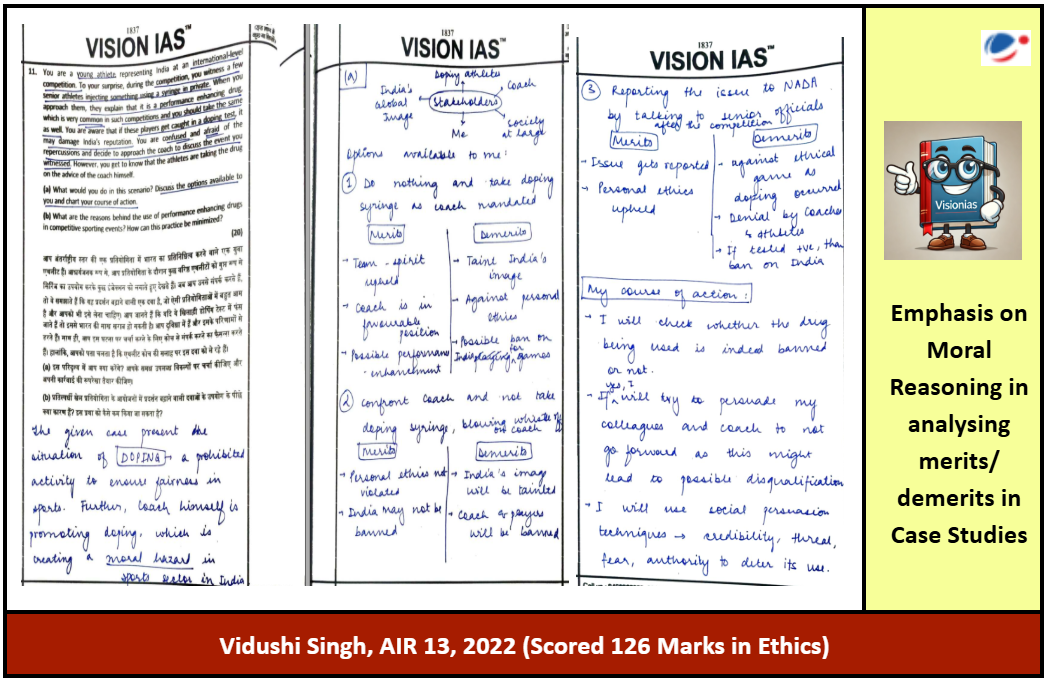 1837
VISION IAS™
11. You are a young athlete representing India at an international-level
competition. To your surprise, during the competition, you witness a few
senior athletes injecting something using a syringe in private. When you
approach them, they explain that it is a performance enhancing drug,
which is very common in such competitions and you should take the same
as well. You are aware that if these players get caught in a doping test, it
may damage India's reputation. You are confused and afraid of the
repercussions and decide to approach the coach to discuss the event you
witnessed. However, you get to know that the athletes are taking the drug
on the advice of the coach himself.
(a) What would you do in this scenario? Discuss the options available to
you and chart your course of action.
(b) What are the reasons behind the use of performance enhancing drugs
in competitive sporting events? How can this practice be minimized?
(20)
आप अंतर्राष्ट्रीय स्तर की एक प्रतियोगिता में भारत का प्रतिनिधित्व करने वाले एक युवा
(a) इस परिदृश्य में आप क्या करेंगे? आपके समक्ष उपलब्ध विकल्पों पर चर्चा कीजिए और
अपनी कार्रवाई की रूपरेखा तैयार कीजिए।
(b) प्रतिस्पर्धी खेल प्रतियोगिता के आयोजनों में प्रदर्शन बढ़ाने वाली दवाओं के उपयोग के पीछे
क्या कारण हैं? इस प्रथा को कैसे कम किया जा सकता है?
The given case present the
situation of DOPING → a prohibited
activity to ensure fairness in
sports. Further, coach himself is
promoting doping, which is
creating a moral hazard in
sports sector in India
1837
VISION IAS™
(a)
Doping athletes
India's Global Image
Coach
Stakeholders
Me
Society at large
Options available to me:
① Do nothing and take doping
syringe as coach mandated
Merits
Demerits
→ Team-spirit upheld
→ Coach is in favourable position
→ Possible performance enhancement
→ Taint India's image
→ Against personal ethics
→ Possible ban on India playing for games
② Confront coach and not take
doping syringe, blowing whistle
on coach
Merits
Demerits
→ Personal ethics not violated
→ India may not be banned
→ India's image will be tainted
→ Coach & players will be banned
1837
VISION IAS™
③ Reporting the issue to NADA
by talking to senior officials
after the competition
Merits
Demerits
→ Issue gets reported
→ Personal ethics upheld
→ against ethical game as doping occurred
→ Denial by coaches & athletes
→ If tested +ve, than ban on India
My course of action:
→ I will check whether the drug
being used is indeed banned
or not.
→ If yes, I will try to persuade my
colleagues and coach to not
go forward as this might
lead to possible disqualification
→ I will use social persuasion
techniques → credibility, threat,
fear, authority to deter its use.
Visionias
Emphasis on
Moral
Reasoning in
analysing
merits/
demerits in
Case Studies
Vidushi Singh, AIR 13, 2022 (Scored 126 Marks in Ethics)